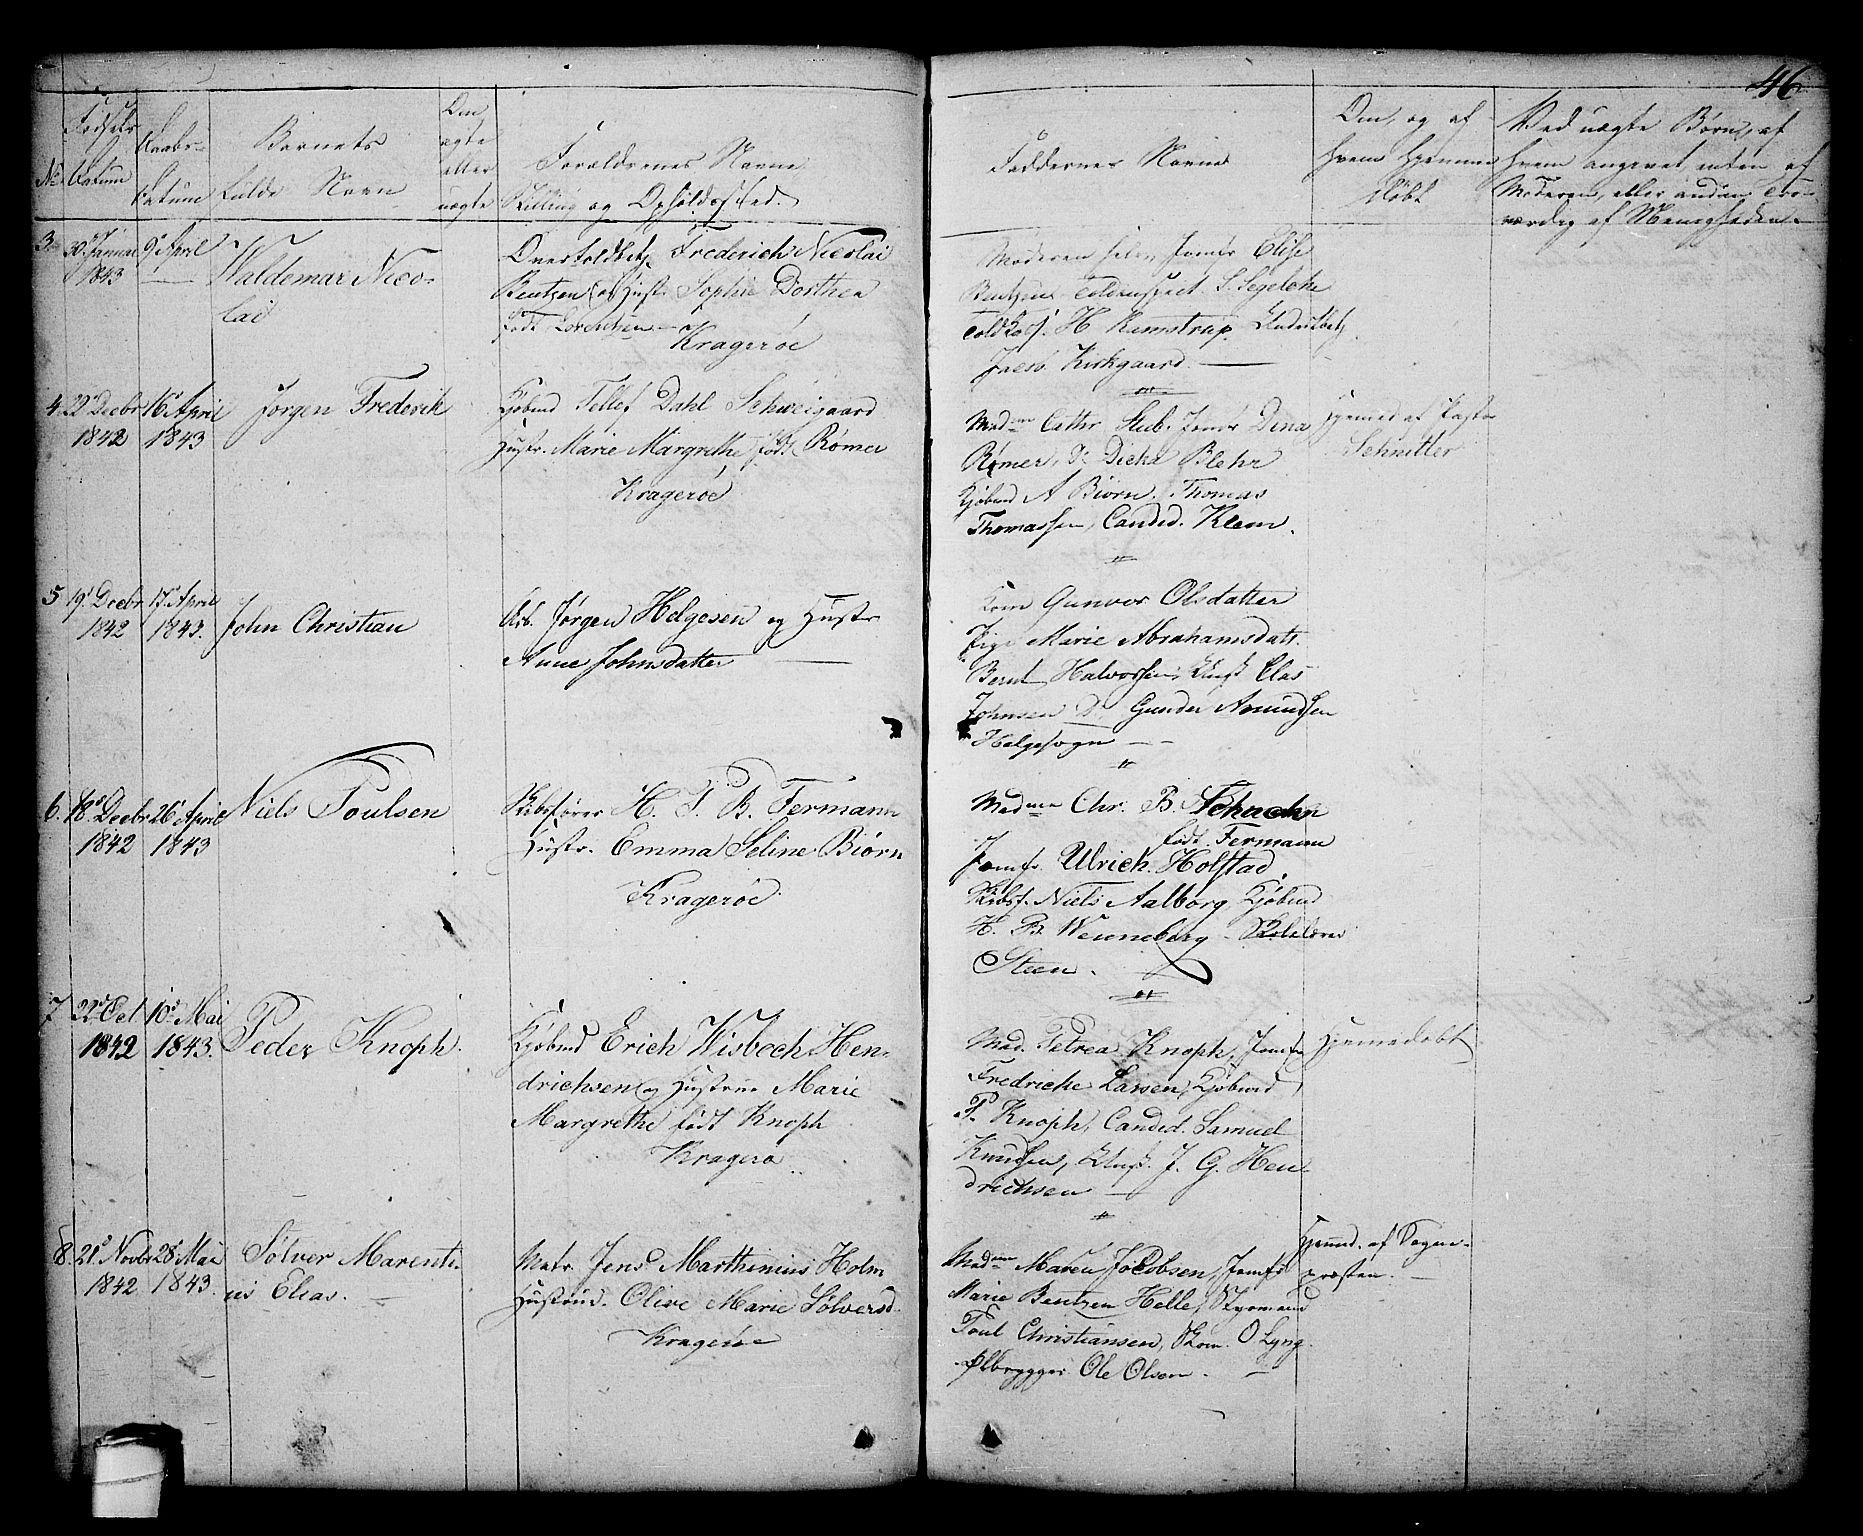 46
No
Fødsels
Datum
Daabs-
Datum
Barnets
fulde Navn
Om
ægte
eller
uægte
Forældrenes Navne
Stilling og Opholdssted.
Faddernes Navne
Om, og af
hvem hjemme
døbt
Ved uægte Børn, af
hvem angivet enten af
Moderen, eller anden Tro-
værdig af Menigheden.
3
30 Januar
1843
9 April
Waldemar Nico-
lai
Overtoldbetj. Frederich Nicolai
Bentzen og Hust. Sophie Dorthea
født Lorentzen
Kragerøe
Moderen selv, Jomfr Elise
Bentzen Toldinspect. S. Segelcke
H Kamstrup, Undertbetj.
Jacob Kirkgaard
4
22 Decbr
1842
16 April
1843
Jørgen Frederik
Kjøbmd Tellef Dahl Schweigaard
Hustr. Marie Margrethe født Rømer
Kragerøe
Madme Cathr Stub. Jomfr Dina
Rømer, Do Dicka Blehr
Kjøbmd A Biørn, Thomas
Thomassen, Candid. Klem.
Hjemmed af Pastor
Schnitler
5
19 Decbr
1842
17 April
1843.
John Christian
Arb. Jørgen Helgesen og Hustr
Anne Johnsdatter
Kone Gunvor Olsdatter
Pige Marie Abrahamsdatt.
Bernt Halvorsen, Ungk Elas
Johnsen Do Gunder Amundsen
Helgesogn
6.
18 Decbr
1842
26 April
1843
Niels Poulsen
Skibsfører H. P. B. Fermann
Hustr. Emma Seline Biørn
Kragerøe
Madme Chr. B. Schachn
født Fermann
Jomfr. Ulrich. Holstad,
Skibsf. Niels Aalborg, Kjøbmd
H. B. Wenneberg - Skolelærer
Steen.
7
22 Oct
1842
10 Mai
1843.
Peder Knoph.
Kjøbmd Erich Wisbech Hen-
drichsen og Hustrue Marie
Margrethe født Knoph
Kragerø
Mad. Petrea Knoph, Jomfr
Fredriche Larsen, Kjøbmd
P. Knoph, Candid. Samuel
Knudsen, Ungk. J. G. Hen-
drichsen
Hjemmedøbt
8.
21 Novbr
1842
28 Mai
1843.
Sølver Marenti-
us Elias.
Matr. Jens Marthinius Holm
Hustrue. Olive Marie Sølversd.
Kragerøe
Madme Maren Jacobsen, Jomfr
Marie Bentzen Helle, Styrmand
Poul Christiansen, Skom. O Lyng
Ølbrygger Ole Olsen.
Hjemmd. af Sogne-
præsten.